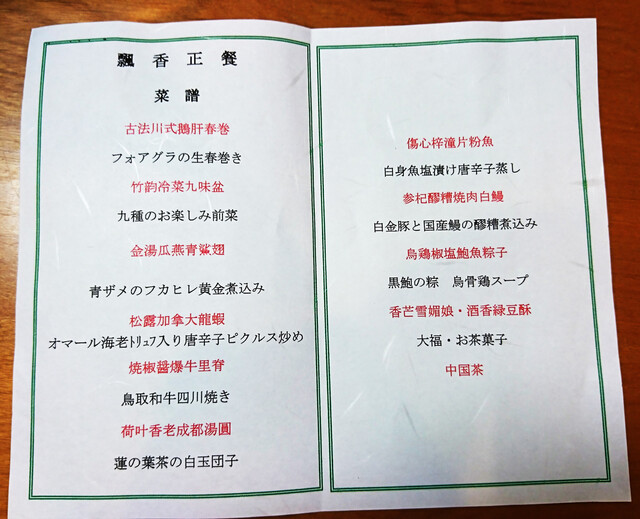 飄香正餐
菜譜
古法川式鵝肝春巻
フォアグラの生春巻き
竹韵冷菜九味盆
九種のお楽しみ前菜
金湯瓜燕青鯊翅
青ザメのフカヒレ黄金煮込み
松露加拿大龍蝦
オマール海老ﾄﾘｭﾌ入り唐辛子ピクルス炒め
焼椒醤爆牛里脊
鳥取和牛四川焼き
荷叶香老成都湯圓
蓮の葉茶の白玉団子
傷心梓潼片粉魚
白身魚塩漬け唐辛子蒸し
参杞醪糟焼肉白鰻
白金豚と国産鰻の醪糟煮込み
烏鶏椒塩鮑魚粽子
黒鮑の粽　烏骨鶏スープ
香芒雪媚娘・酒香緑豆酥
大福・お茶菓子
中国茶